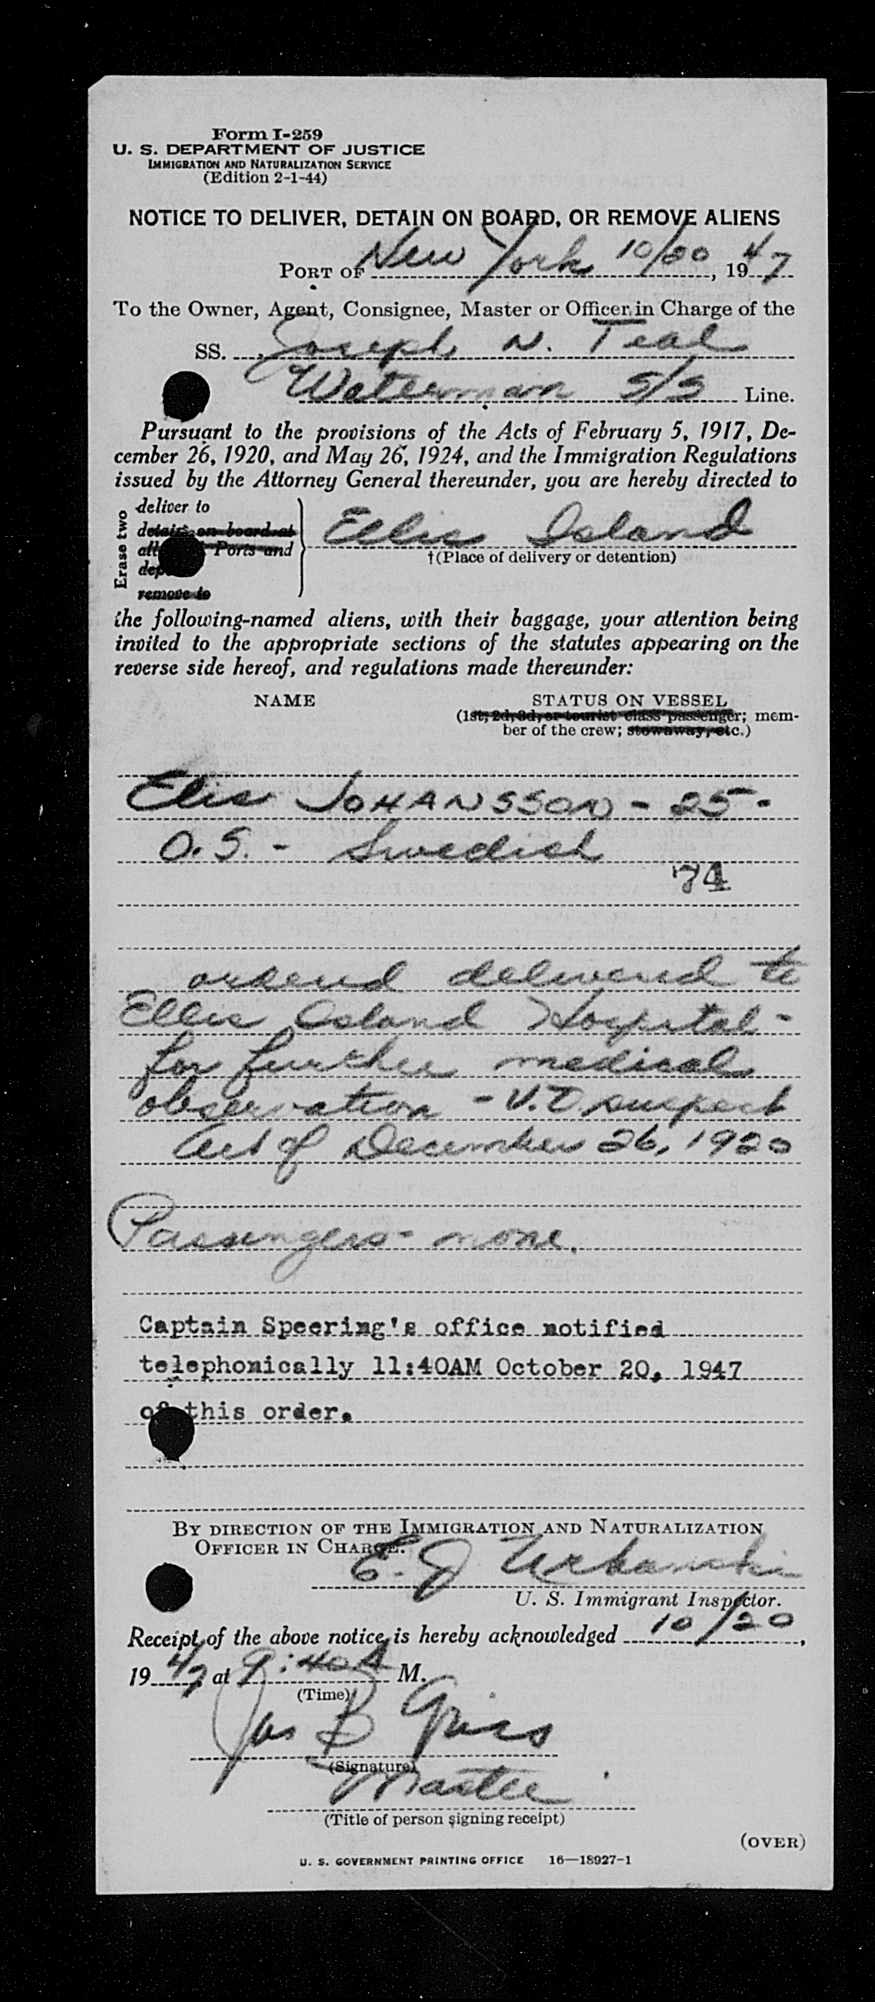 Form I-259
U. S. DEPARTMENT OF JUSTICE
IMMIGRATION AND NATURALIZATION SERVICE
(Edition 2-1-44)
NOTICE TO DELIVER, DETAIN ON BOARD, OR REMOVE ALIENS
PORT OF New York 10/20, 1947
To the Owner, Agent, Consignee, Master or Officer in Charge of the
SS. Joseph N. Teal
Waterman S/S Line.
Pursuant to the provisions of the Acts of February 5, 1917, De-
cember 26, 1920, and May 26, 1924, and the Immigration Regulations
issued by the Attorney General thereunder, you are hereby directed to
Erase two
deliver to
detain on board at
Ports and
remove to
Ellis Island
†(Place of delivery or detention)
the following-named aliens, with their baggage, your attention being
invited to the appropriate sections of the statutes appearing on the
reverse side hereof, and regulations made thereunder:
NAME STATUS ON VESSEL
(1st, 2d, 3d, or tourist class passenger; mem-
ber of the crew; stowaway, etc.)
Elis JOHANSSON - 25 -
O.S. - Swedish
74
ordered delivered to
Ellis Island Hospital -
for further medical
observation - V.D. suspect
Act of December 26, 1920
Passengers - none.
Captain Speering's office notified
telephonically 11:40AM October 20, 1947
of this order.
BY DIRECTION OF THE IMMIGRATION AND NATURALIZATION
OFFICER IN CHARGE.
E. J Urbanski
U. S. Immigrant Inspector.
Receipt of the above notice is hereby acknowledged 10/20,
1947 at 9:40 A M.
(Time)
Jas B
(Signature)
Master
(Title of person signing receipt)
(OVER)
U. S. GOVERNMENT PRINTING OFFICE 16—18927-1